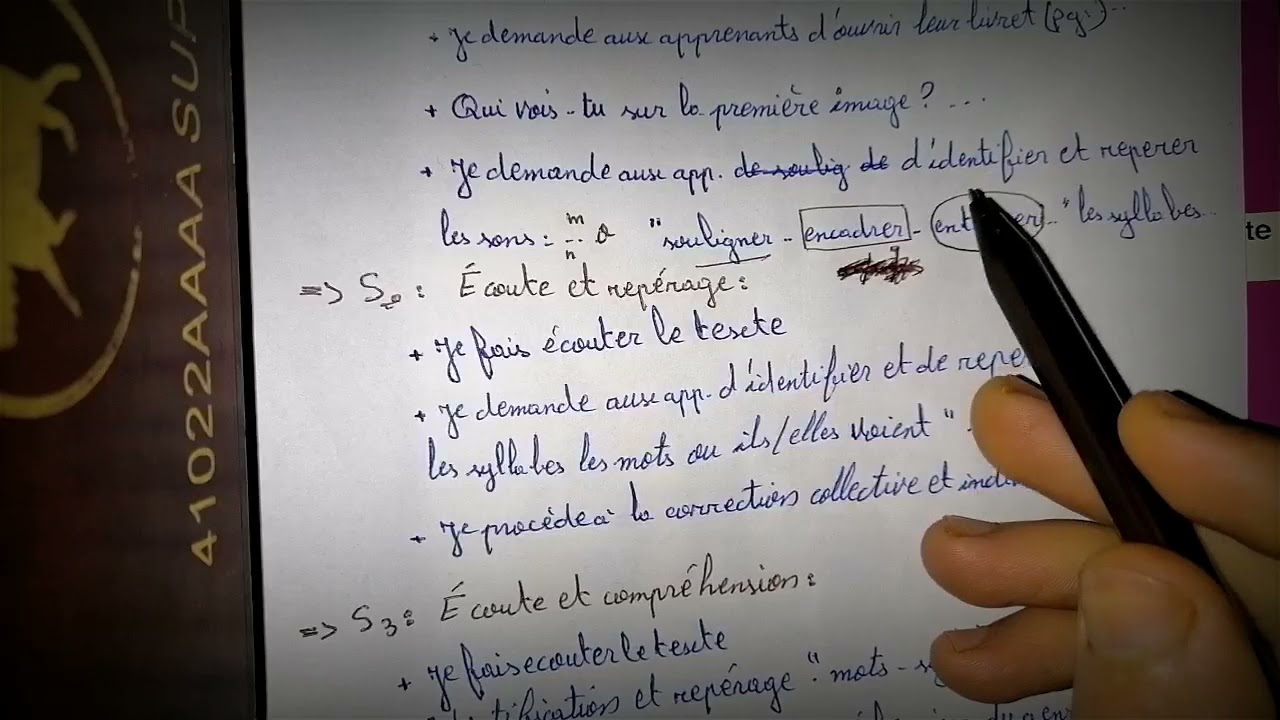 + Je demande aux apprenants d'ouvrir leur livret (pg:)..
+ Qui vois-tu sur la première image ? ...
+ Je demande aux app. de soulig de d'identifier et reperer
les sons : m n o "souligner - encadrer - ..." les syllabes...
=> S2 : Écoute et repérage :
+ Je fais écouter le texte
+ Je demande aux app. d'identifier et de repe
les syllabes les mots ou ils/elles voient "
+ Je procède à la correction collective et indi
=> S3 : Écoute et compréhension :
+ Je fais ecouter le texte
et repérage : "mots - sy
41022AAAA SUP
te